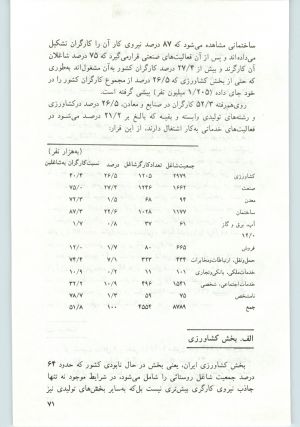 ساختمانی مشاهده می‌شود که ۸۷ درصد نیروی کار آن را کارگران تشکیل
می‌داده‌اند و پس از آن فعالیت‌های صنعتی قرار‌می‌گیرد که ۷۵ درصد شاغلان
آن کارگرند و بیش از ۲۷/۴ درصد کارگران کشور به آن مشغول‌اند به‌طوری
که حتی از بخش کشاورزی که ۲۶/۵ درصد از مجموع کارگران کشور را در
خود جای داده (۱/۲۰۵ میلیون نفر) پیشی گرفته است.
روی‌هم‌رفته ۵۲/۳ درصد کارگران در صنایع و معادن، ۲۶/۵ درصد درکشاورزی
و رشته‌های تولیدی وابسته و بقیه که بالغ بر ۲۱/۲ درصد می‌شود در
فعالیت‌های خدماتی به‌کار اشتغال دارند، از این قرار:
(به‌هزار نفر)
جمعیت‌شاغل تعدادکارگرشاغل درصد نسبت‌کارگران به‌شاغلین
کشاورزی ۲۹۷۹ ۱۲۰۵ ۲۶/۵ ۴۰/۴
صنعت ۱۶۶۲ ۱۲۴۶ ۲۷/۴ ۷۵/۰
معدن ۹۴ ۶۸ ۱/۵ ۷۲/۳
ساختمان ۱۱۷۷ ۱۰۲۸ ۲۲/۶ ۸۷/۳
آب، برق و گاز ۶۱ ۳۷ ۰/۸ ۱/۷
۱۲/۰
فروش ۶۶۵ ۸۰ ۱/۷ ۱۲/۰
حمل‌ونقل، ارتباطات‌ومخابرات ۴۳۴ ۳۲۳ ۷/۱ ۷۴/۴
خدمات‌ملکی، بانکی‌وتجاری ۱۰۱ ۱۱ ۰/۲ ۱۰/۹
خدمات‌اجتماعی، شخصی ۱۵۴۱ ۴۹۶ ۱۰/۹ ۳۲/۲
نامشخص ۷۵ ۵۹ ۱/۳ ۷۸/۷
جمع ۸۷۸۹ ۴۵۵۴ ۱۰۰ ۵۱/۸
الف. بخش کشاورزی
بخش کشاورزی ایران، یعنی بخش در حال نابودی کشور که حدود ۶۴
درصد جمعیت شاغل روستائی را شامل می‌شود، در شرایط موجود نه تنها
جاذب نیروی کارگری بیش‌تری نیست بل‌که به‌سایر بخش‌های تولیدی نیز
۷۱